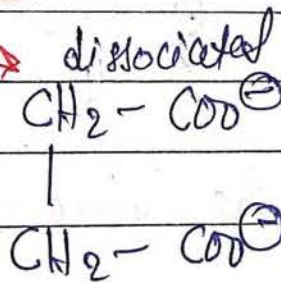 dissociated
CH₂ - COO⊖
|
CH₂ - COO⊖